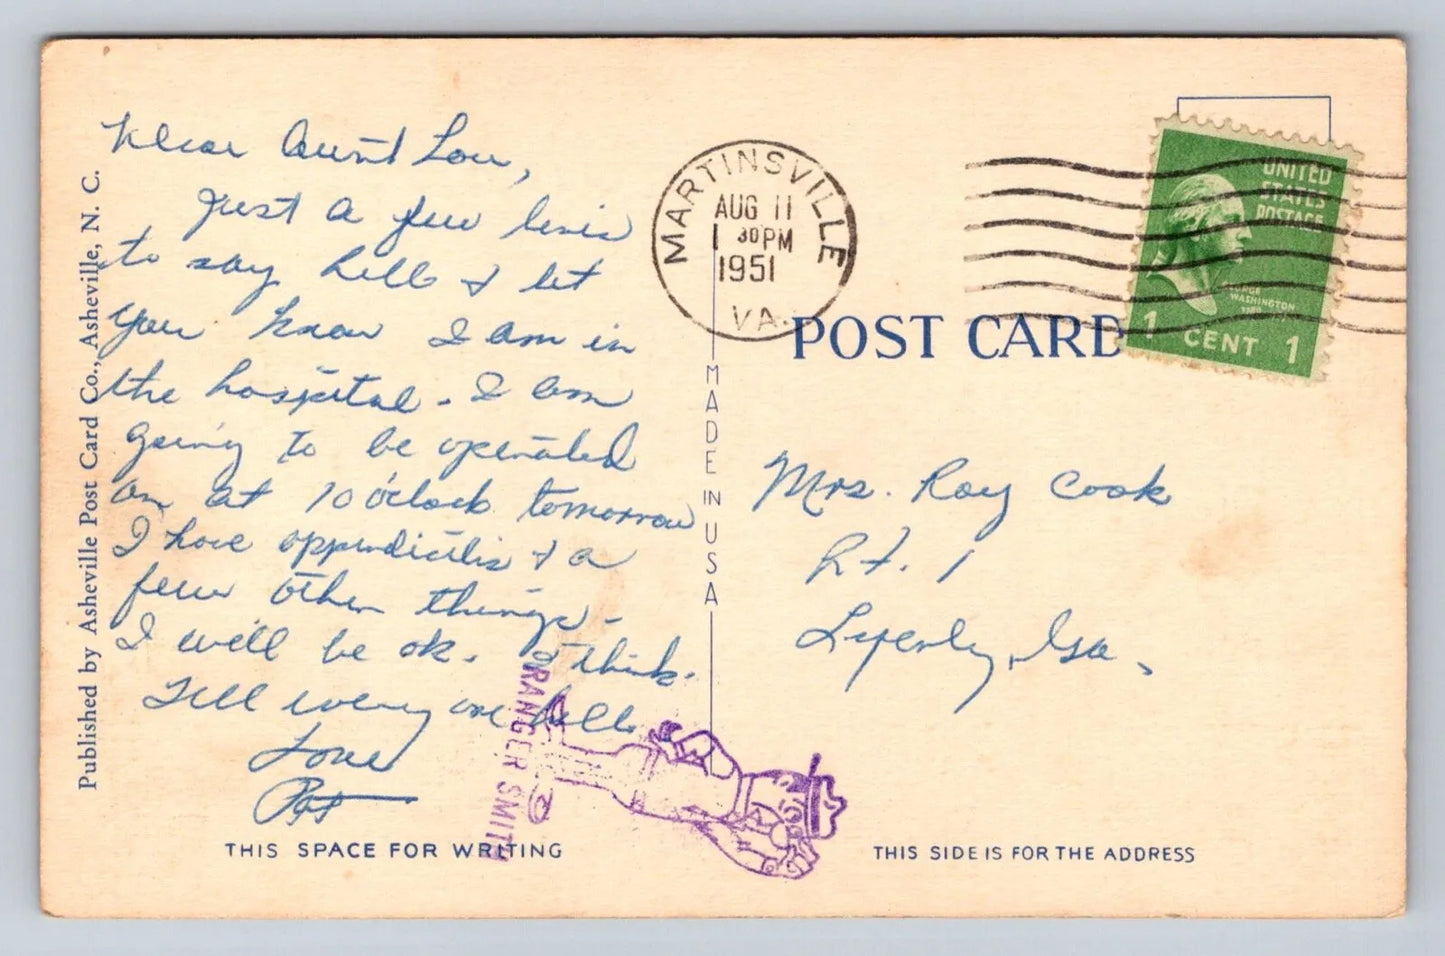 Dear Aunt Lou,
Just a few lines
to say hello & let
you know I am in
the hospital. I am
going to be operated
on at 10 o'clock tomorrow
I have appendicitis & a
few other things.
I will be ok. I think.
Tell every one hello
Love
Pat
THIS SPACE FOR WRITING
Published by Asheville Post Card Co., Asheville, N. C.
MARTINSVILLE
AUG 11
1 30 PM
1951
VA.
UNITED
STATES
POSTAGE
GEORGE
WASHINGTON
1 CENT 1
POST CARD
MADE IN USA
Mrs. Roy Cook
Rt. 1
Lyerly, Ga.
RANGER SMITH
THIS SIDE IS FOR THE ADDRESS